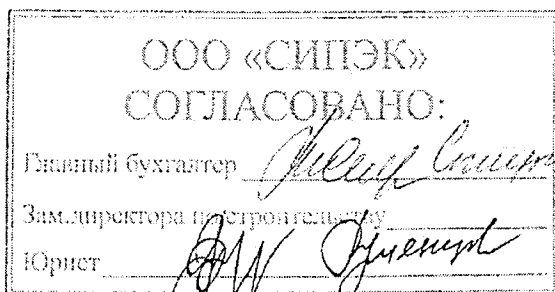 ООО «СИПЭК»
СОГЛАСОВАНО:
Главный бухгалтер
Зам.директора по строительству
Юрист